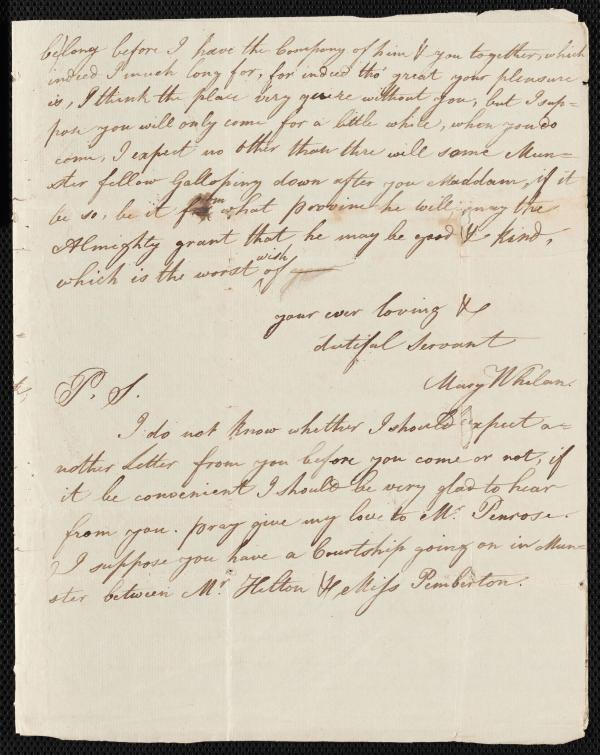 be long before I have the Company of him & you together, which
indeed I much long for, for indeed tho' great your pleasure
is, I think the place very quere without you, but I sup=
pose you will only come for a little while, when you do
come, I expect no other than thre will some Mun=
ster fellow Galloping down after you Maddam, if it
be so, be it from what Provinc he will, may the
Almighty grant that he may be good & kind,
which is the worst wish of
your ever loving &
dutiful Servant
Mary Whelan.
P. S.
I do not know whether I should expect a=
nother Letter from you before you come or not, if
it be convenient I should be very glad to hear
from you. pray give my love to Mr. Penrose.
I suppose you have a Courtship going on in Mun=
ster between Mr. Helton & Miss Pemberton.